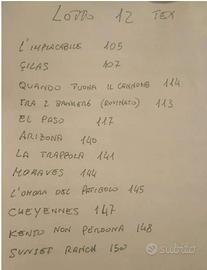 LOTTO 12 TEX
L'IMPLACABILE 105
GILAS 107
QUANDO TUONA IL CANNONE 114
TRA 2 BANDIERE (ROVINATO) 113
EL PASO 117
ARIZONA 140
LA TRAPPOLA 141
MORAVES 144
L'OMBRA DEL PATIBOLO 145
CHEYENNES 147
KENTO NON PERDONA 148
SUNSET RANCH 150
subito